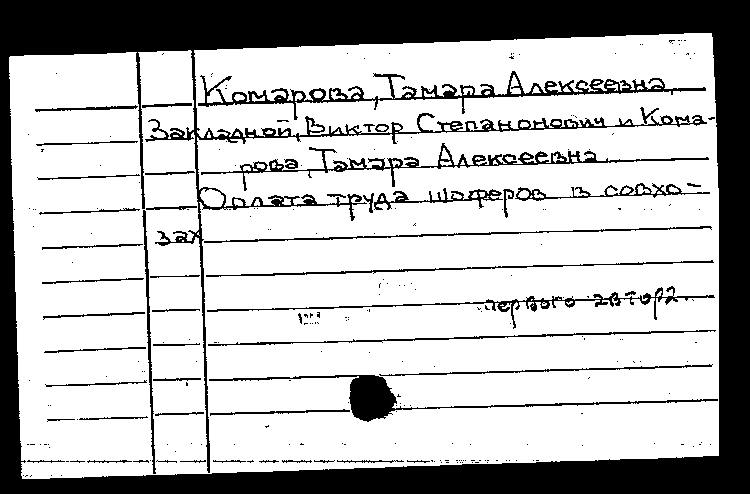 Комарова, Тамара Алексеевна.
Закладной, Виктор Степанонович и Кома-
рова, Тамара Алексеевна.
Оплата труда шоферов в совхо-
зах
первого автора.